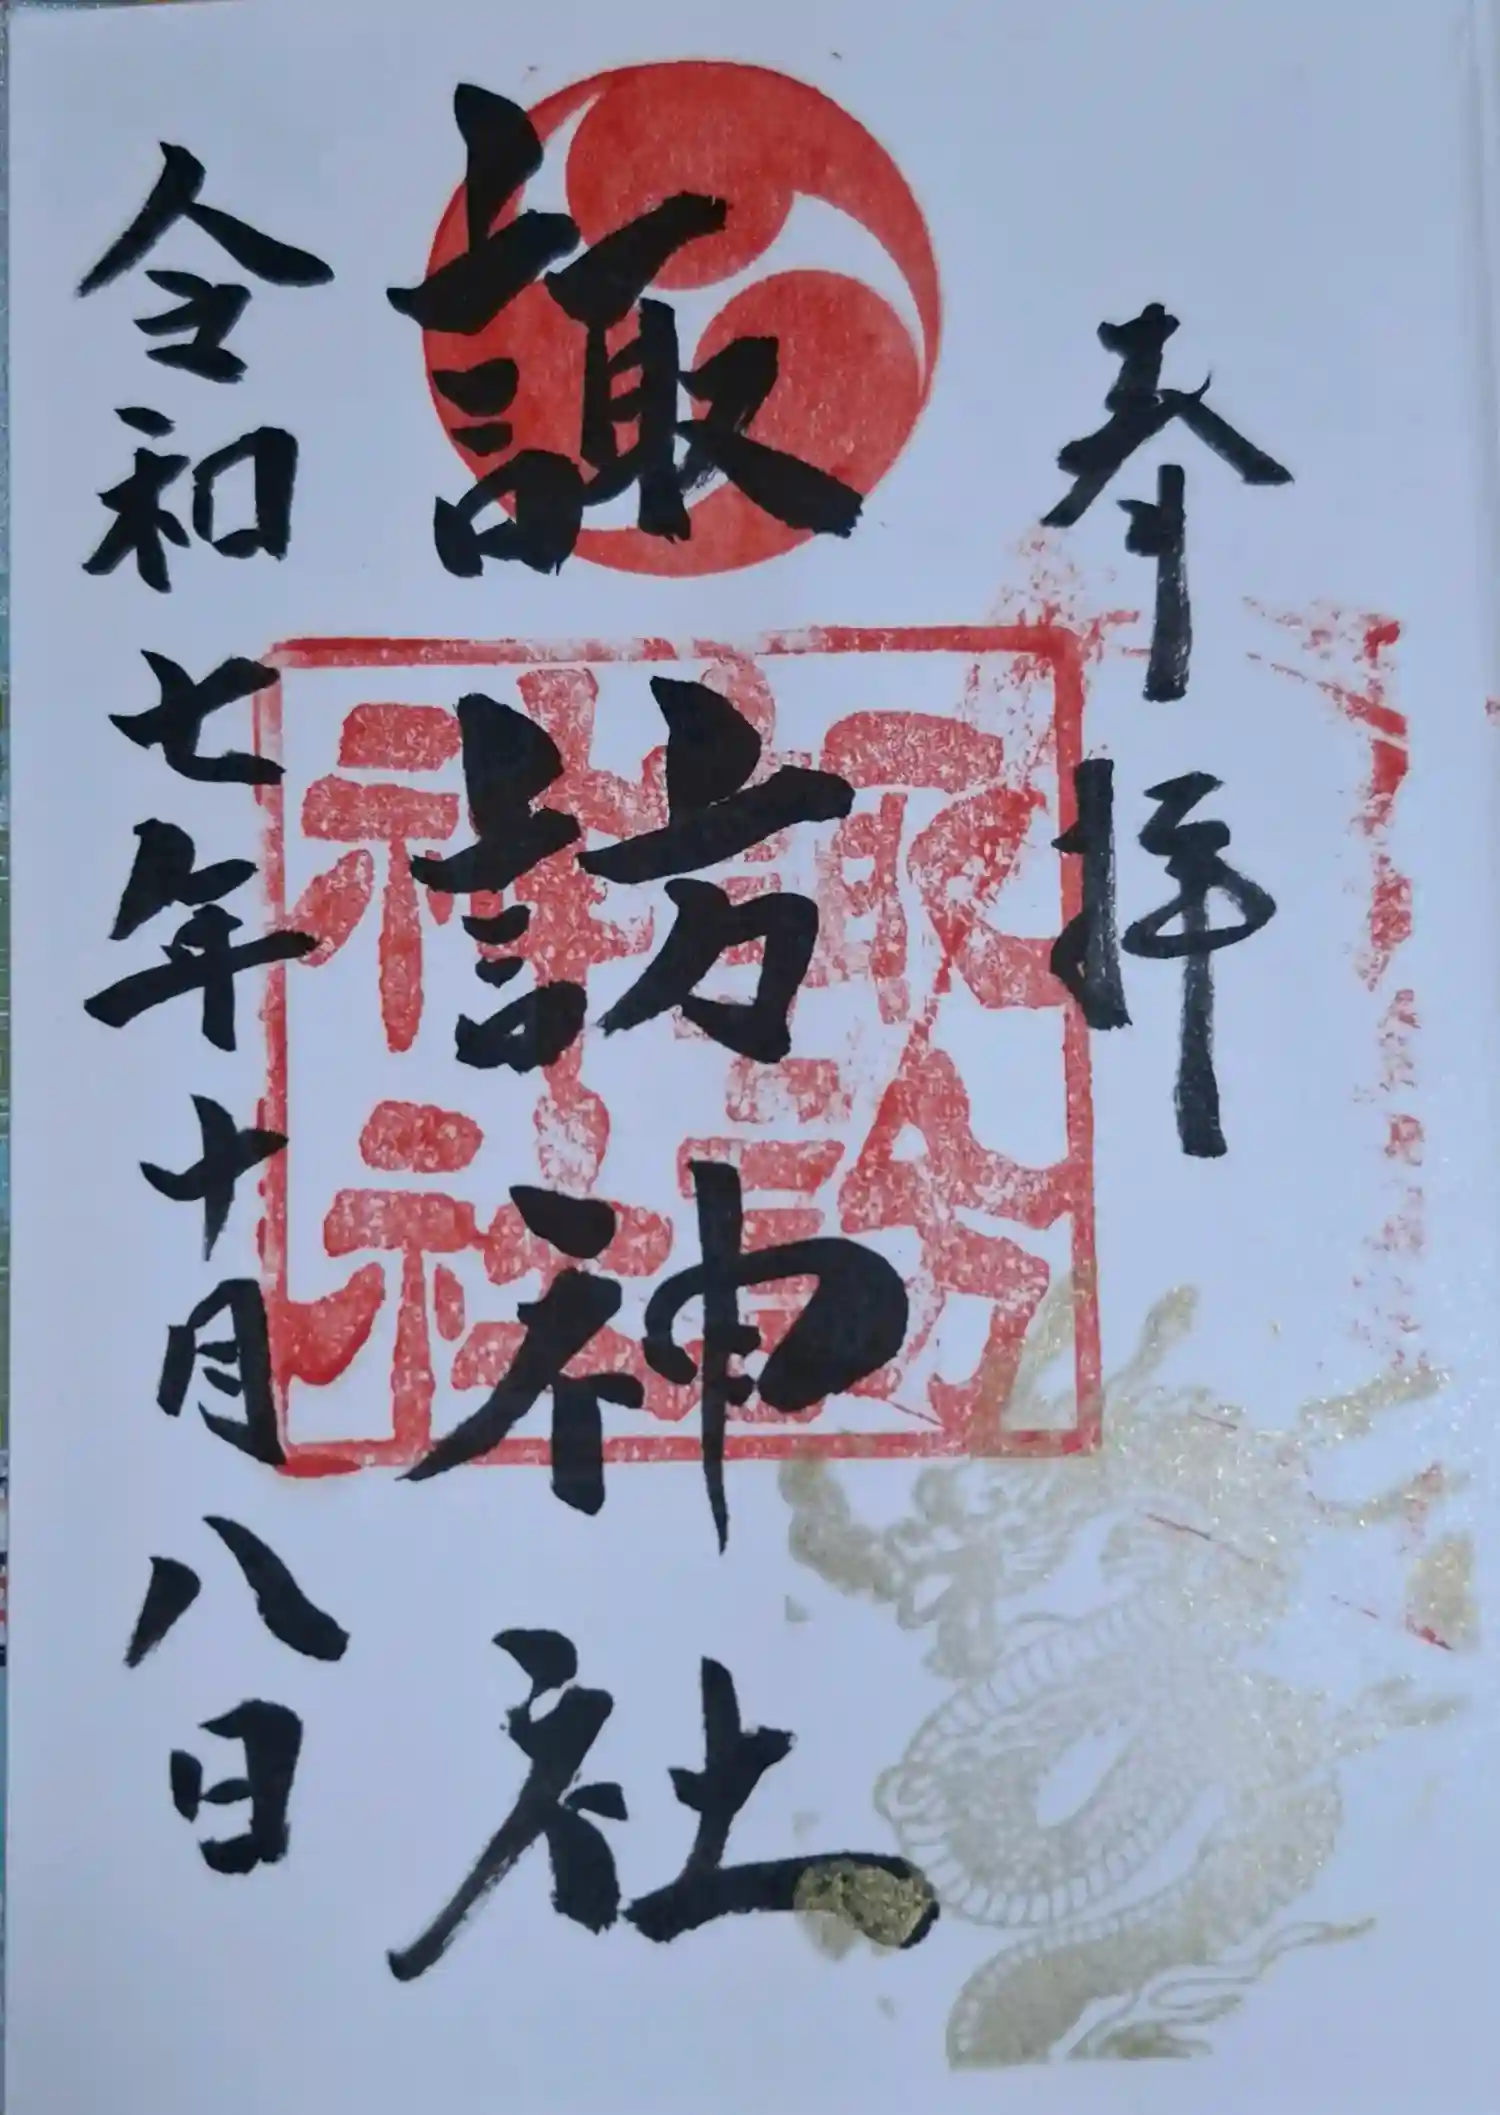 奉拝
諏訪神社
諏訪
神社
令和七年十月八日